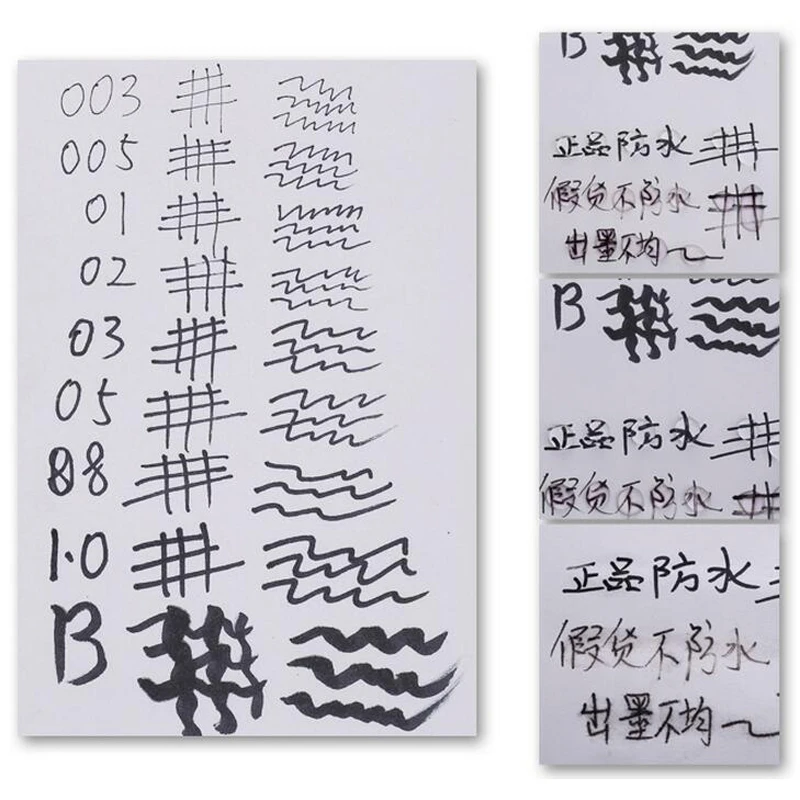 003
005
01
02
03
05
08
1.0
B
B
正品防水
假货不防水
出墨不均
B
正品防水
假货不防水
正品防水
假货不防水
出墨不均